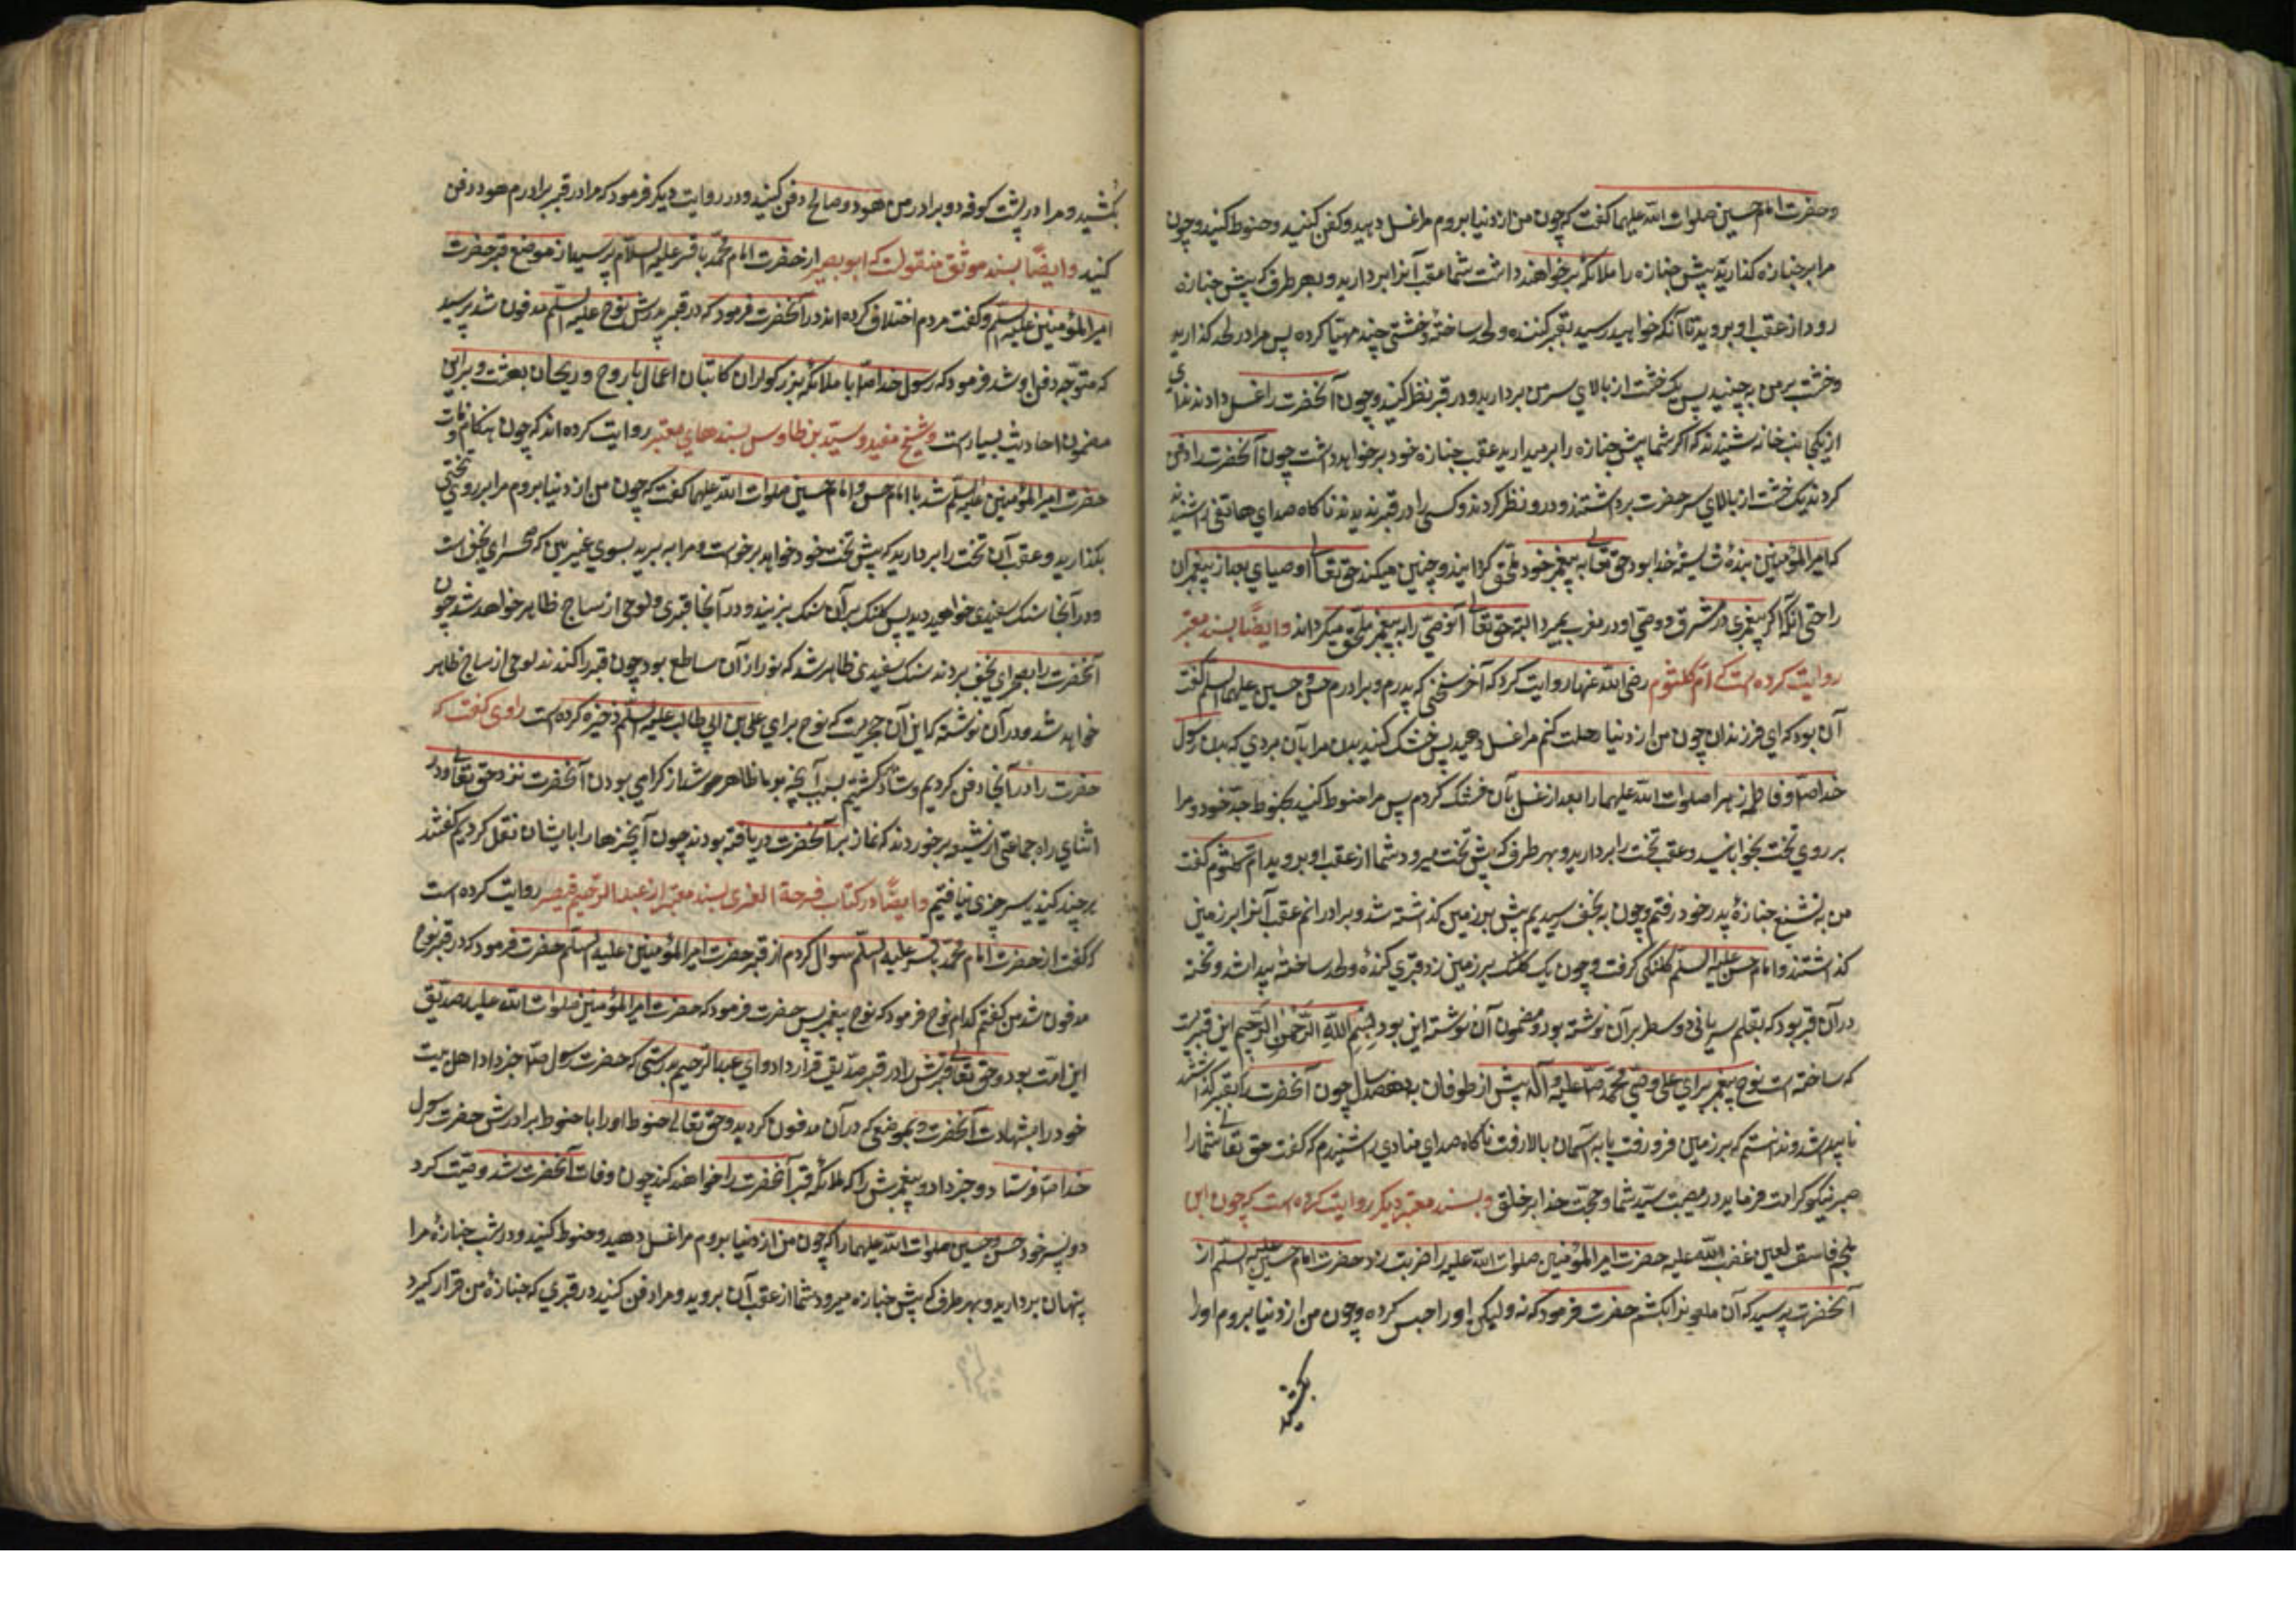 و حضرت امام حسین صلوات الله علیهما گفت که چون من از دنیا بروم مرا غسل دهید و کفن کنید و حنوط کنید و چون
مرا بر جنازه گذارید پیش جنازه را ملائکه بر خواهند داشت شما عقب آنرا بردارید و بهر طرف که پیش جنازه
رود از عقب او بروید تا آنکه خواهید رسید بقبر کننده و لحد ساختهٔ و خشتی چند مهیّا کرده پس مرا در لحد گذارید
و خشت بر من بچینید پس یک خشت از بالای سر من بردارید و در قبر نظر کنید و چون آنحضرت را غسل دادند ندای
از یکجانب خانه شنیدند که اگر شما پیش جنازه را بر میدارید عقب جنازه خود بر خواهد داشت چون آنحضرت را دفن
کردند یک خشت از بالای سر حضرت برداشتند و در و نظر کردند و کسی را در قبر ندیدند ناگاه صدای هاتفی را شنیدند
که امیر المؤمنین بندهٔ شایستهٔ خدا بود حق تعالی به پیغمبر خود ملحق گردانید و چنین میکند حق تعالی اوصیای بعد از پیغمبران
را حتی آنکه اگر پیغمبری در مشرق و وصی او در مغرب بمیرد البته حق تعالی آنوصی را به پیغمبر ملحق میگرداند و ایضًا بسند معتبر
روایت کرده است که امّ کلثوم رضی الله عنها روایت کرد که آخر سخنی که پدرم و برادرم حسن و حسین علیهما السلم گفت
آن بود که ای فرزندان چون من از دنیا رحلت کنم مرا غسل دهید پس خشک کنید بدن مرا بآن بردی که بدن رسول
خدا صم و فاطمه زهرا صلوات الله علیهما را بعد از غسل بآن خشک کردم پس مرا حنوط کنید بحنوط جد خود و مرا
بر روی تخت بخوابانید و عقب تخت را بردارید و بهر طرف که پیش تخت میرود شما از عقب او بروید ام کلثوم گفت
من به تشییع جنازهٔ پدر خود رفتم و چون به نجف رسیدیم پیش بر زمین گذاشته شد و برادرانم عقب آنرا بر زمین
گذاشتند و امام حسن علیه السلم کلنکی گرفت و چون یک کلنک بر زمین زد قبری کنده و لحد ساخته پیدا شد و تخته
در آن قبر بود که بقلم سریانی دو سطر بر آن نوشته بود و مضمون آن نوشته این بود بسم الله الرحمن الرحیم این قبریست
که ساخته است نوح پیغمبر برای علی وصی محمد صلّی علیه و آله پیش از طوفان بهفتصد سال چون آنحضرت را بقبر گذاشتند
ناپیدا شد و ندانستم که بر زمین فرو رفت یا به آسمان بالا رفت ناگاه صدای منادی را شنیدم که گفت حق تعالی شما را
صبر نیکو کرامت فرماید در مصیبت سیّد شما و حجّت خدا بر خلق و بسند معتبر دیگر روایت کرده است که چون ابن
ملجم فاسق لعین غضب الله علیه حضرت امیر المؤمنین صلوات الله علیه را ضربت زد حضرت امام حسین علیه السلم از
آنحضرت پرسید که آن ملعون را بکشم حضرت فرمود که نه ولیکن او را حبس کرده و چون من از دنیا بروم او را
بکشید
بکشید و مرا در پشت کوفه دو برادر من هود و صالح دفن کنید و در روایت دیگر فرمود که مرا در قبر برادرم هود دفن
کنید و ایضًا بسند موثق منقولست که ابو بصیر از حضرت امام محمّد باقر علیه السلام پرسید از موضع قبر حضرت
امیر المؤمنین علیه السلم و گفت مردم اختلاف کرده اند در آن حضرت فرمود که در قبر پدرش نوح علیه السلم مدفون شد پرسید
که متوجّه دفن او شد فرمود که رسول خدا صم با ملائکه بزرگواران کاتبان اعمال با روح و ریحان بهشت و بر این
مضمون احادیث بسیار است و شیخ مفید و سیّد بن طاوس بسندهای معتبر روایت کرده اند که چون هنگام وفات
حضرت امیر المؤمنین علیه السلم شد با امام حسن و امام حسین صلوات الله علیهما گفت که چون من از دنیا بروم مرا بر روی تختی
بگذارید و عقب آن تخت را بردارید که پیش تخت خود خواهد برخواست و مرا به برید بسوی غیریین که صحرای نجف است
و در آنجا سنک سفیدی خواهید دید پس کلنک بر آن سنک بزنید و در آنجا قبری و لوحی از ساج ظاهر خواهد شد چون
آنحضرت را بصحرای نجف بردند سنک سفیدی ظاهر شد که نور از آن ساطع بود چون قبر را کندند لوحی از ساج ظاهر
خواهد شد و در آن نوشته که این آن چیزیست که نوح برای علی بن ابی طالب علیه السلم ذخیره کرده است راوی گفت که
حضرت را در آنجا دفن کردیم و شاد گشتیم بسبب آنچه بر ما ظاهر شد از گرامی بودن آنحضرت نزد حق تعالی و در
اثنای راه جماعتی از شیعه بر خوردند که نماز بر آنحضرت در نیافته بودند چون آنچیزها را با ایشان نقل کردیم گفتند
هر چند کندیم چیزی نیافتیم و ایضًا در کتاب فرحة الغری بسند معتبر از عبد الرحیم قصیر روایت کرده است
که گفت از حضرت امام محمّد باقر علیه السلم سوال کردم از قبر حضرت امیر المؤمنین علیه السلم حضرت فرمود که در قبر نوح
مدفون شد من گفتم کدام نوح فرمود که نوح پیغمبر پس حضرت فرمود که حضرت امیر المؤمنین صلوات الله علیه صدیق
این امت بود و حق تعالی قبرش را در قبر صدّیق قرار داد و ای عبد الرحیم بدرستی که حضرت رسول صم خبر داد اهل بیت
خود را بشهادت آنحضرت و بموضعی که در آن مدفون گردید و حق تعالی حنوط او را با حنوط برادرش حضرت رسول
خدا صم فرستاد و خبر داد پیغمبرش را که ملائکه قبر آنحضرت را خواهند کند چون وفات آنحضرت شد وصیّت کرد
دو پسر خود حسن و حسین صلوات الله علیهما را که چون من از دنیا بروم مرا غسل دهید و حنوط کنید و در شب جنازهٔ مرا
پنهان بردارید و بهر طرف که پیش جنازه میرود شما از عقب آن بروید و مرا دفن کنید در قبری که جنازهٔ من قرار گیرد